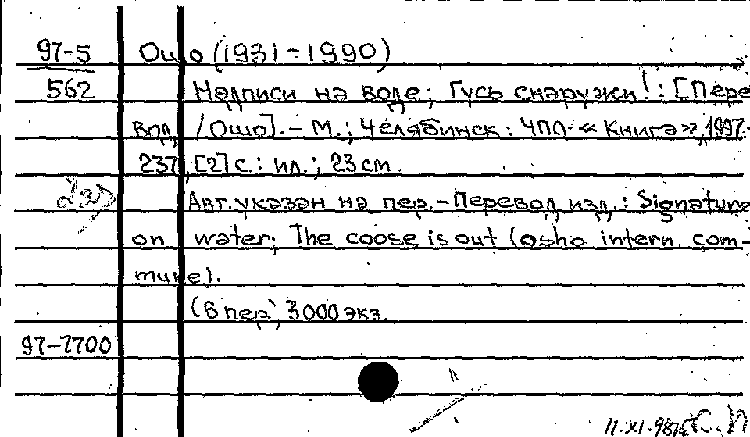 97-5 Ошо (1931-1990)
562 Надписи на воде; Гусь снаружи! : [Пере
вод / Ошо]. - М.; Челябинск : ЧПО "Книга", 1997.
237, [2] с. : ил.; 23 см.
Авт. указан на пер. - Перевод изд.: Signature
on water; The coose is out (osho intern. com-
mune).
(В пер), 3000 экз.
97-7700
11.XI.98